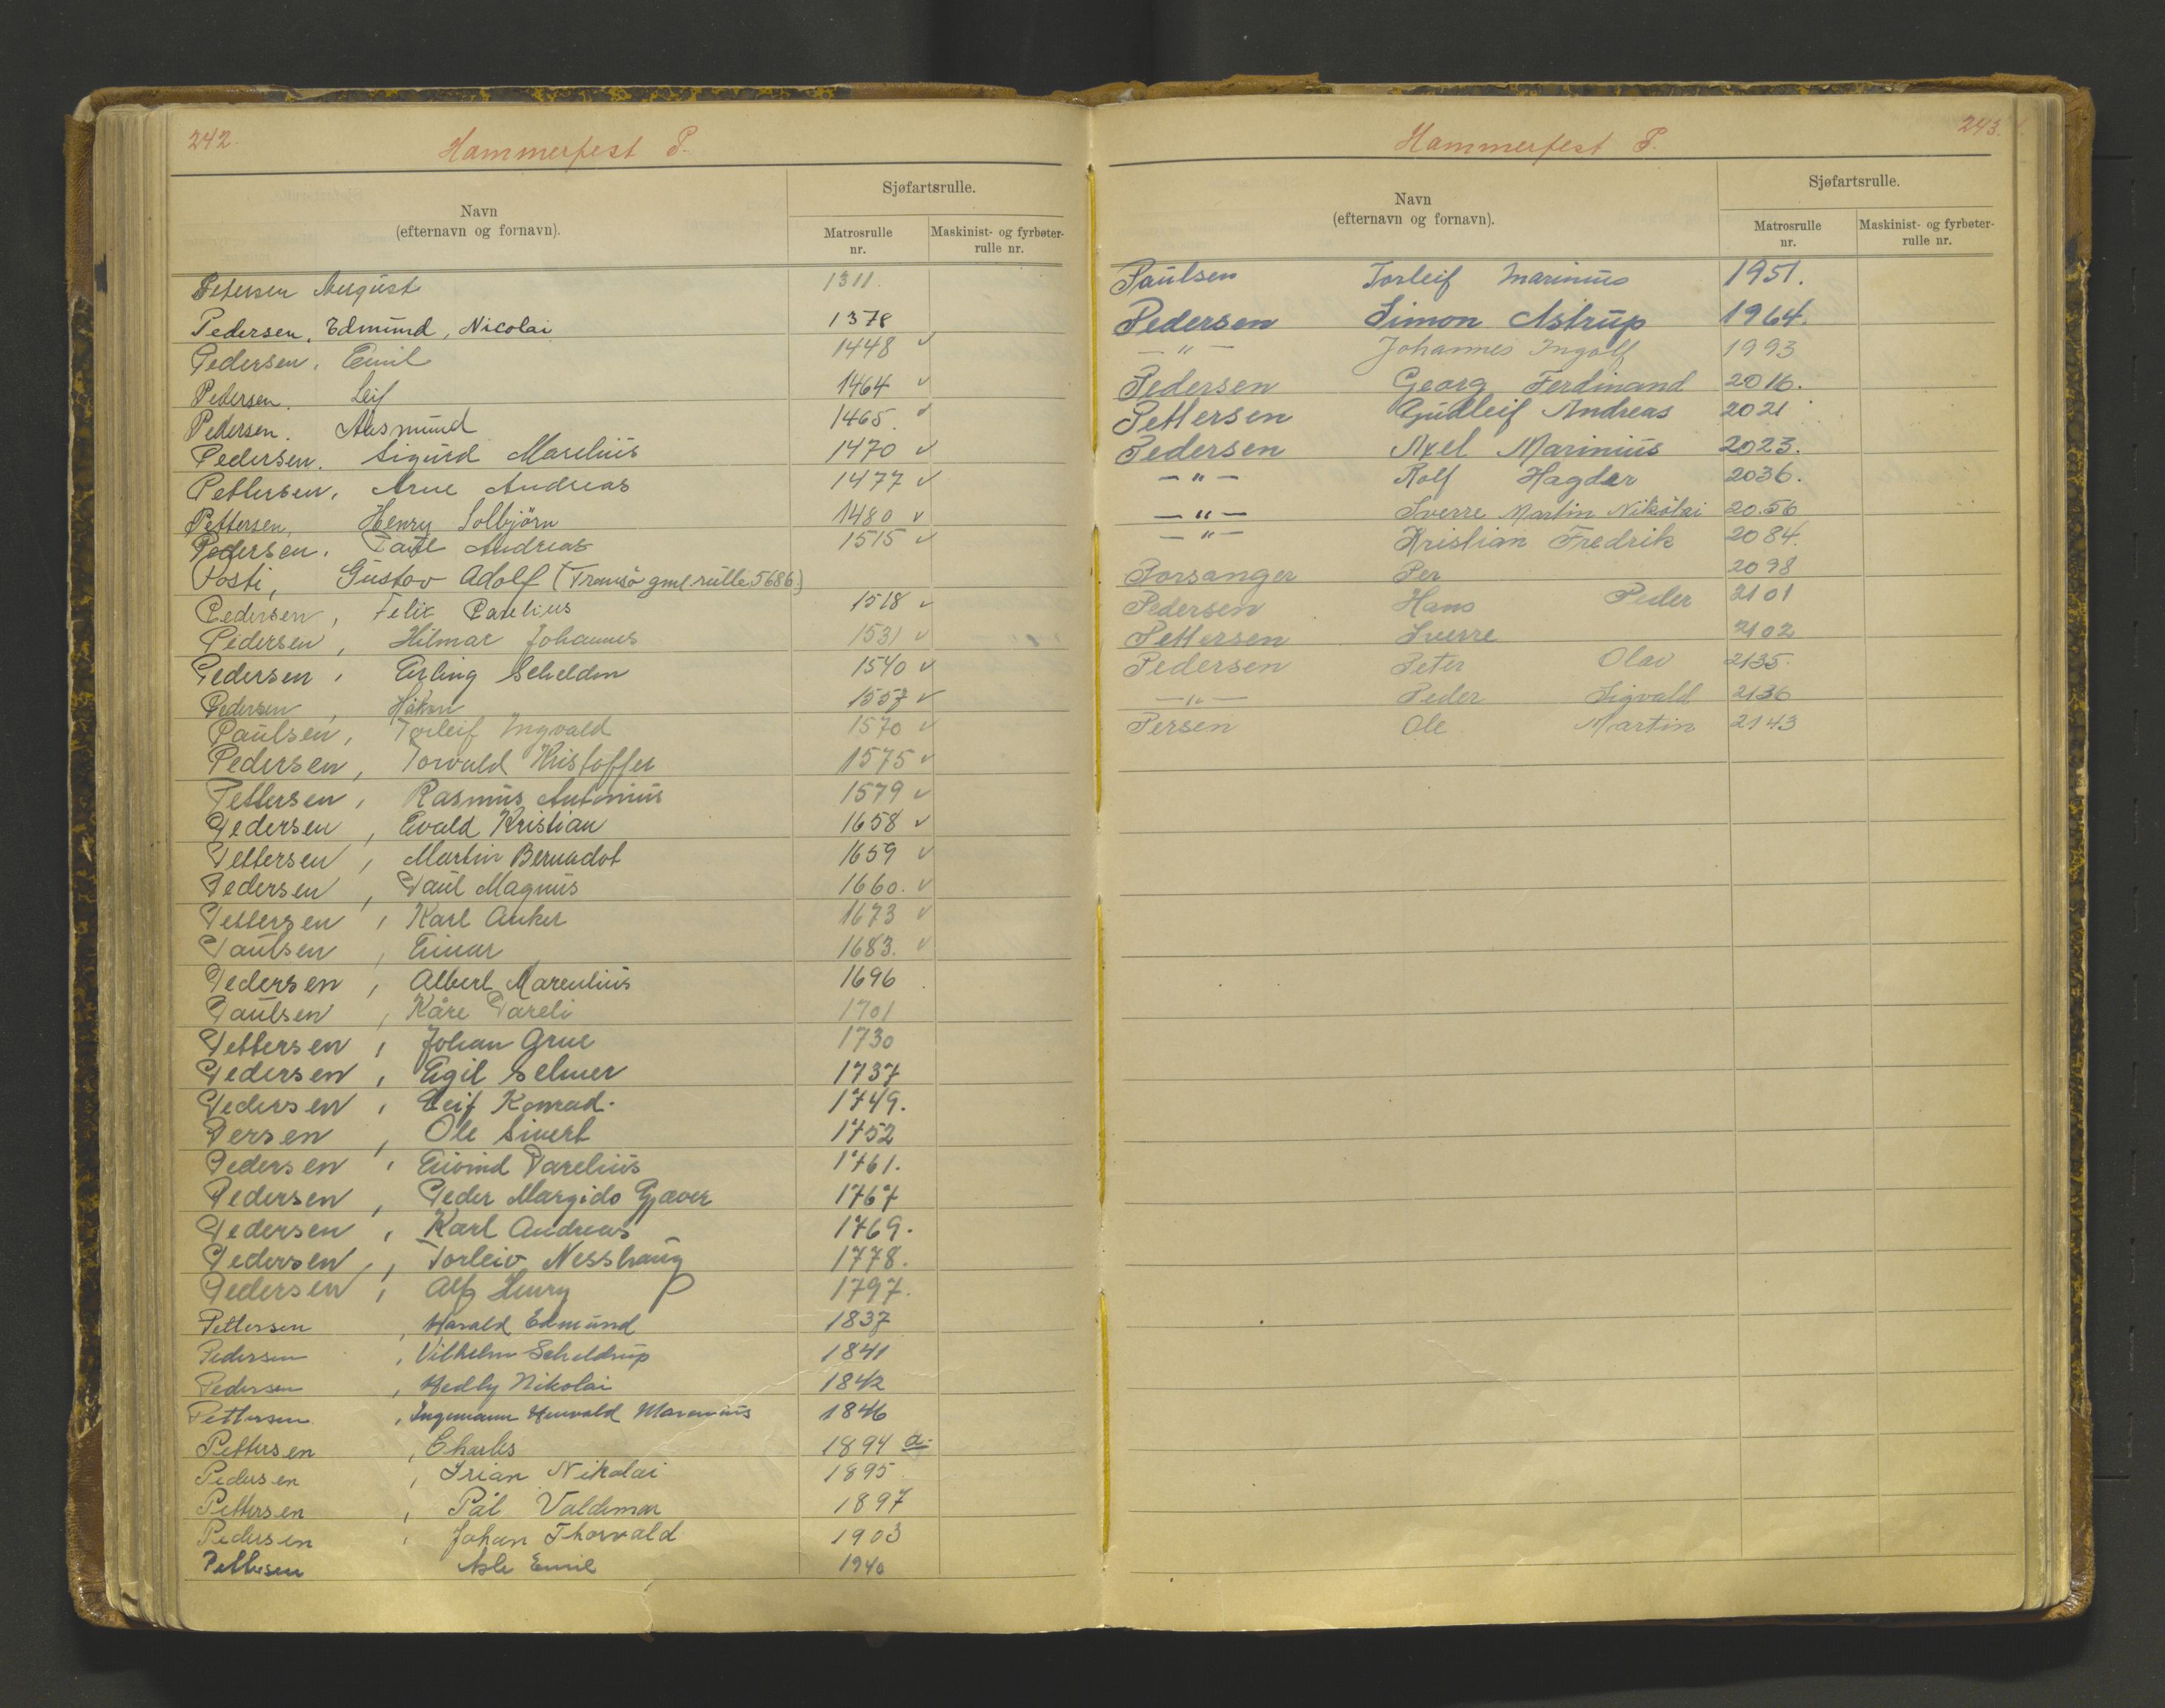 242.
Hammerfest P.
Navn
(efternavn og fornavn).
Sjøfartsrulle.
Matrosrulle
nr.
Maskinist- og fyrbøter-
rulle nr.
Petersen August 1311.
Pedersen, Edmund, Nicolai 1378
Pedersen, Emil 1448 ✓
Pedersen. Leif 1464 ✓
Pedersen. Aasmund 1465. ✓
Pedersen. Sigurd Marelius 1470 ✓
Pettersen, Arne Andreas 1477 ✓
Pettersen, Henry Solbjörn 1480 ✓
Pedersen, Paul Andreas 1515 ✓
Posti, Gustav Adolf (Tromsö gml rulle 5686.)
Pedersen, Felix Parelius 1518 ✓
Pedersen, Hilmar Johannes 1531 ✓
Pedersen, Erling Scheldon 1540 ✓
Pedersen, Håkon 1557 ✓
Paulsen, Torleif Ingvald 1570 ✓
Pedersen, Torvald Kristoffer 1575 ✓
Pettersen, Rasmus Antonius 1579 ✓
Pedersen, Evald Kristian 1658 ✓
Pettersen, Martin Bernadot 1659 ✓
Pedersen, Paul Magnus 1660. ✓
Pettersen, Karl Anker 1673 ✓
Paulsen, Einar 1683. ✓
Pedersen, Albert Marenlius 1696
Paulsen, Kåre Pareli 1701
Pettersen, Johan Grue 1730
Pedersen, Egil Selmer 1737
Pedersen, Leif Konrad. 1749.
Persen, Ole Sivert 1752
Pedersen, Eivind Parelius 1761.
Pedersen, Peder Margido Gjæver 1767
Pedersen, Karl Andreas 1769.
Pedersen, Torleiv Nesshaug 1778.
Pedersen, Alf Henry 1797.
Pettersen, Harald Edmund 1837
Pedersen, Vilhelm Scheldrup 1841
Pedersen, Hedly Nikolai 1842
Pettersen, Ingemann 1846
Pettersen, Charles 1894 a.
Pedersen, Irian Nikolai 1895
Pettersen, Pål Valdemar 1897
Pedersen, Johan Thorvald 1903
Pettersen Asle Emil 1940
243.
Hammerfest P.
Navn
(efternavn og fornavn).
Sjøfartsrulle.
Matrosrulle
nr.
Maskinist- og fyrbøter-
rulle nr.
Paulsen Torleif Marinius 1951.
Pedersen Simon Astrup 1964.
— " — Johannes Ingolf 1993
Pedersen Georg Ferdinand 2016.
Pettersen Gudleif Andreas 2021
Pedersen Axel Marinius 2023.
— " — Rolf Hagder 2036.
— " — Sverre Martin Nikolai 20.56
— " — Kristian Fredrik 2084.
Porsanger Per 2098
Pedersen Hans Peder 2101
Pettersen Sverre 2102
Pedersen Peter Olav 2135.
— " — Peder Sigvald 2136
Persen Ole Martin 2143